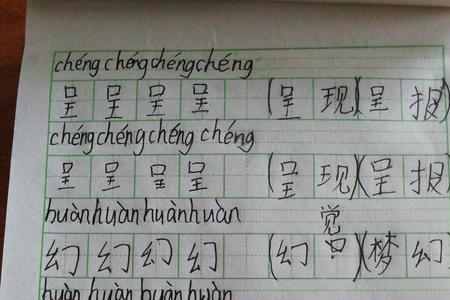 chéngchéngchéngchéng
呈 呈 呈 呈 (呈 现)(呈 报)
chéngchéngchéng chéng
呈 呈 呈 呈 (呈 现)(呈 报)
huànhuànhuànhuàn 觉
幻 幻 幻 幻 (幻 )(梦 幻)
huàn huàn huàn huàn